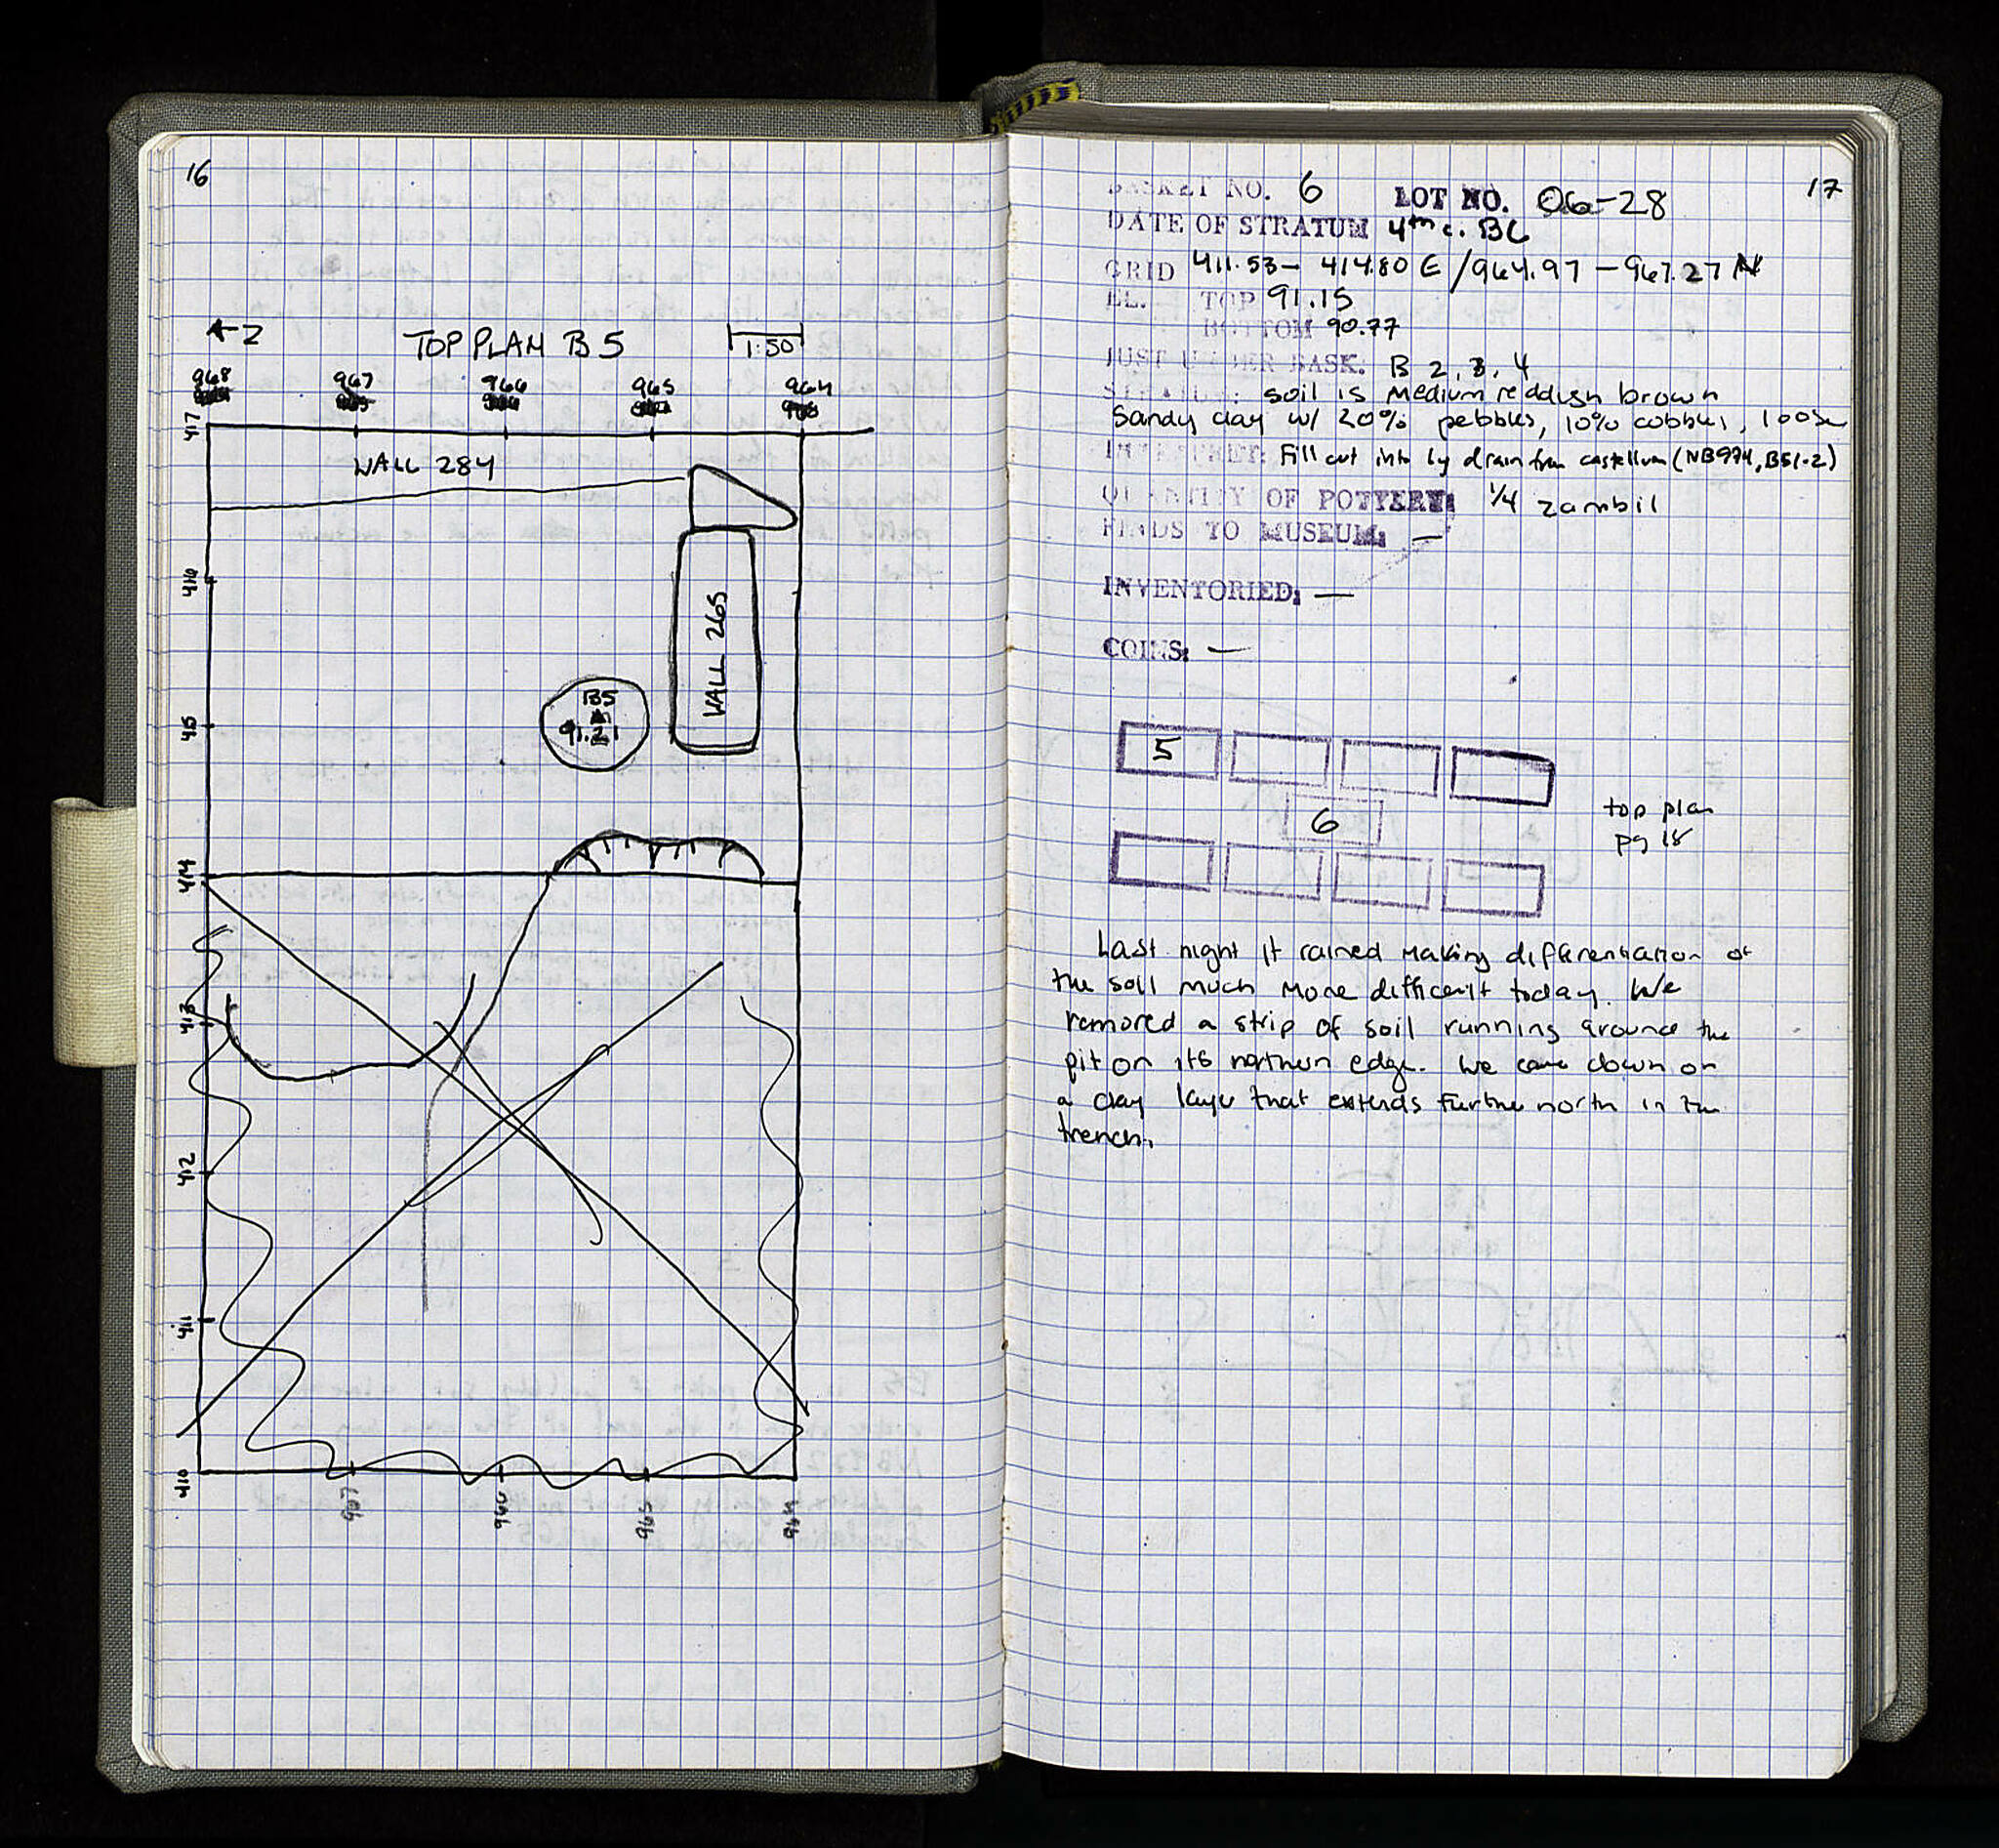 16
←Z TOP PLAN B5 1:50
968 967 966 965 964
417
WALL 284
416
WALL 265
B5
91.21
415
414
413
412
411
410
967 966 965 964
17
BASKET NO. 6 LOT NO. 06-28
DATE OF STRATUM 4th c. BC
GRID 411.53 - 414.80 E / 964.97 - 967.27 N
EL. TOP 91.15
BOTTOM 90.77
JUST UNDER BASK. B 2, 3, 4
STRATUM: soil is medium reddish brown
sandy clay w/ 20% pebbles, 10% cobbles, loose
INTERPRET: Fill cut into by drain from castellum (NB974, B51-2)
QUANTITY OF POTTERY: 1/4 zambil
FINDS TO MUSEUM: —
INVENTORIED: —
COINS: —
5
6
top plan
pg 18
Last night it rained making differentiation of
the soil much more difficult today. We
removed a strip of soil running around the
pit on its northern edge. We came down on
a clay layer that extends further north in the
trench.